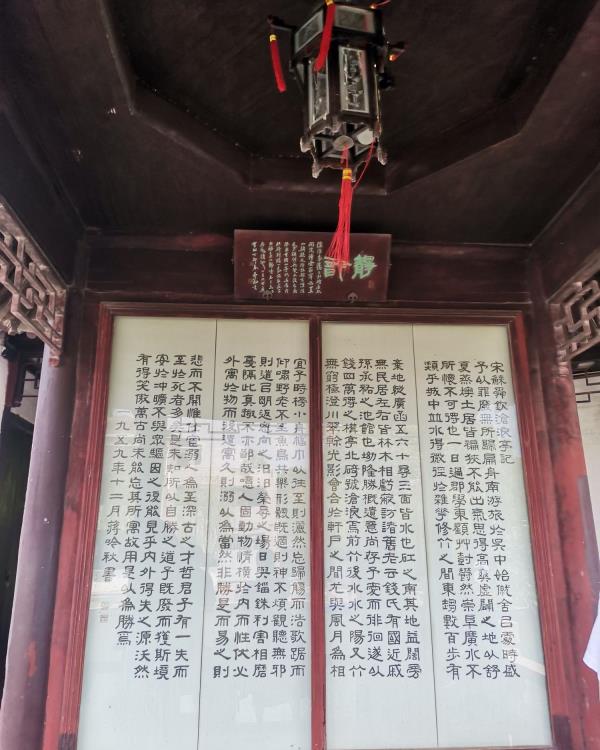 宋蘇舜欽滄浪亭記
予以罪廢無所歸扁舟南游旅於吳中始僦舍以處時盛
夏蒸燠土居皆褊狹不能出氣思得高爽虛闢之地以舒
所懷不可得也一日過郡學東顧艸樹鬱然崇阜廣水不
類乎城中並水得微徑於雜花修竹之間東趨數百步有
棄地縱廣函五六十尋三面皆水也杠之南其地益闊旁
無民居左右皆林木相虧蔽訪諸舊老云錢氏有國近戚
孫承祐之池館也坳隆勝概遺意尚存予愛而徘徊遂以
錢四萬得之構亭北碕號滄浪焉前竹後水水之陽又竹
無窮極澄川翠榦光影會合於軒戶之間尤與風月為相
宜予時榜小舟幅巾以往至則灑然忘歸觴而浩歌踞而
仰嘯野老不至魚鳥共樂形骸既適則神不煩觀聽無邪
則道以明返思向之汩汩榮辱之場日與錙銖利害相磨
戛隔此真趣不亦鄙哉噫人固動物情橫於內而性伏必
外寓於物而後遣寓久則溺以為當然非勝是而易之則
悲而不開惟仕宦溺人為至深古之才哲君子有一失而
至於死者多矣是未知所以自勝之道予既廢而獲斯境
安於沖曠不與眾驅因之復能見乎內外得失之源沃然
有得笑傲萬古尚未能忘其所寓故用是以為勝焉
一九五九年十二月蔣吟秋書